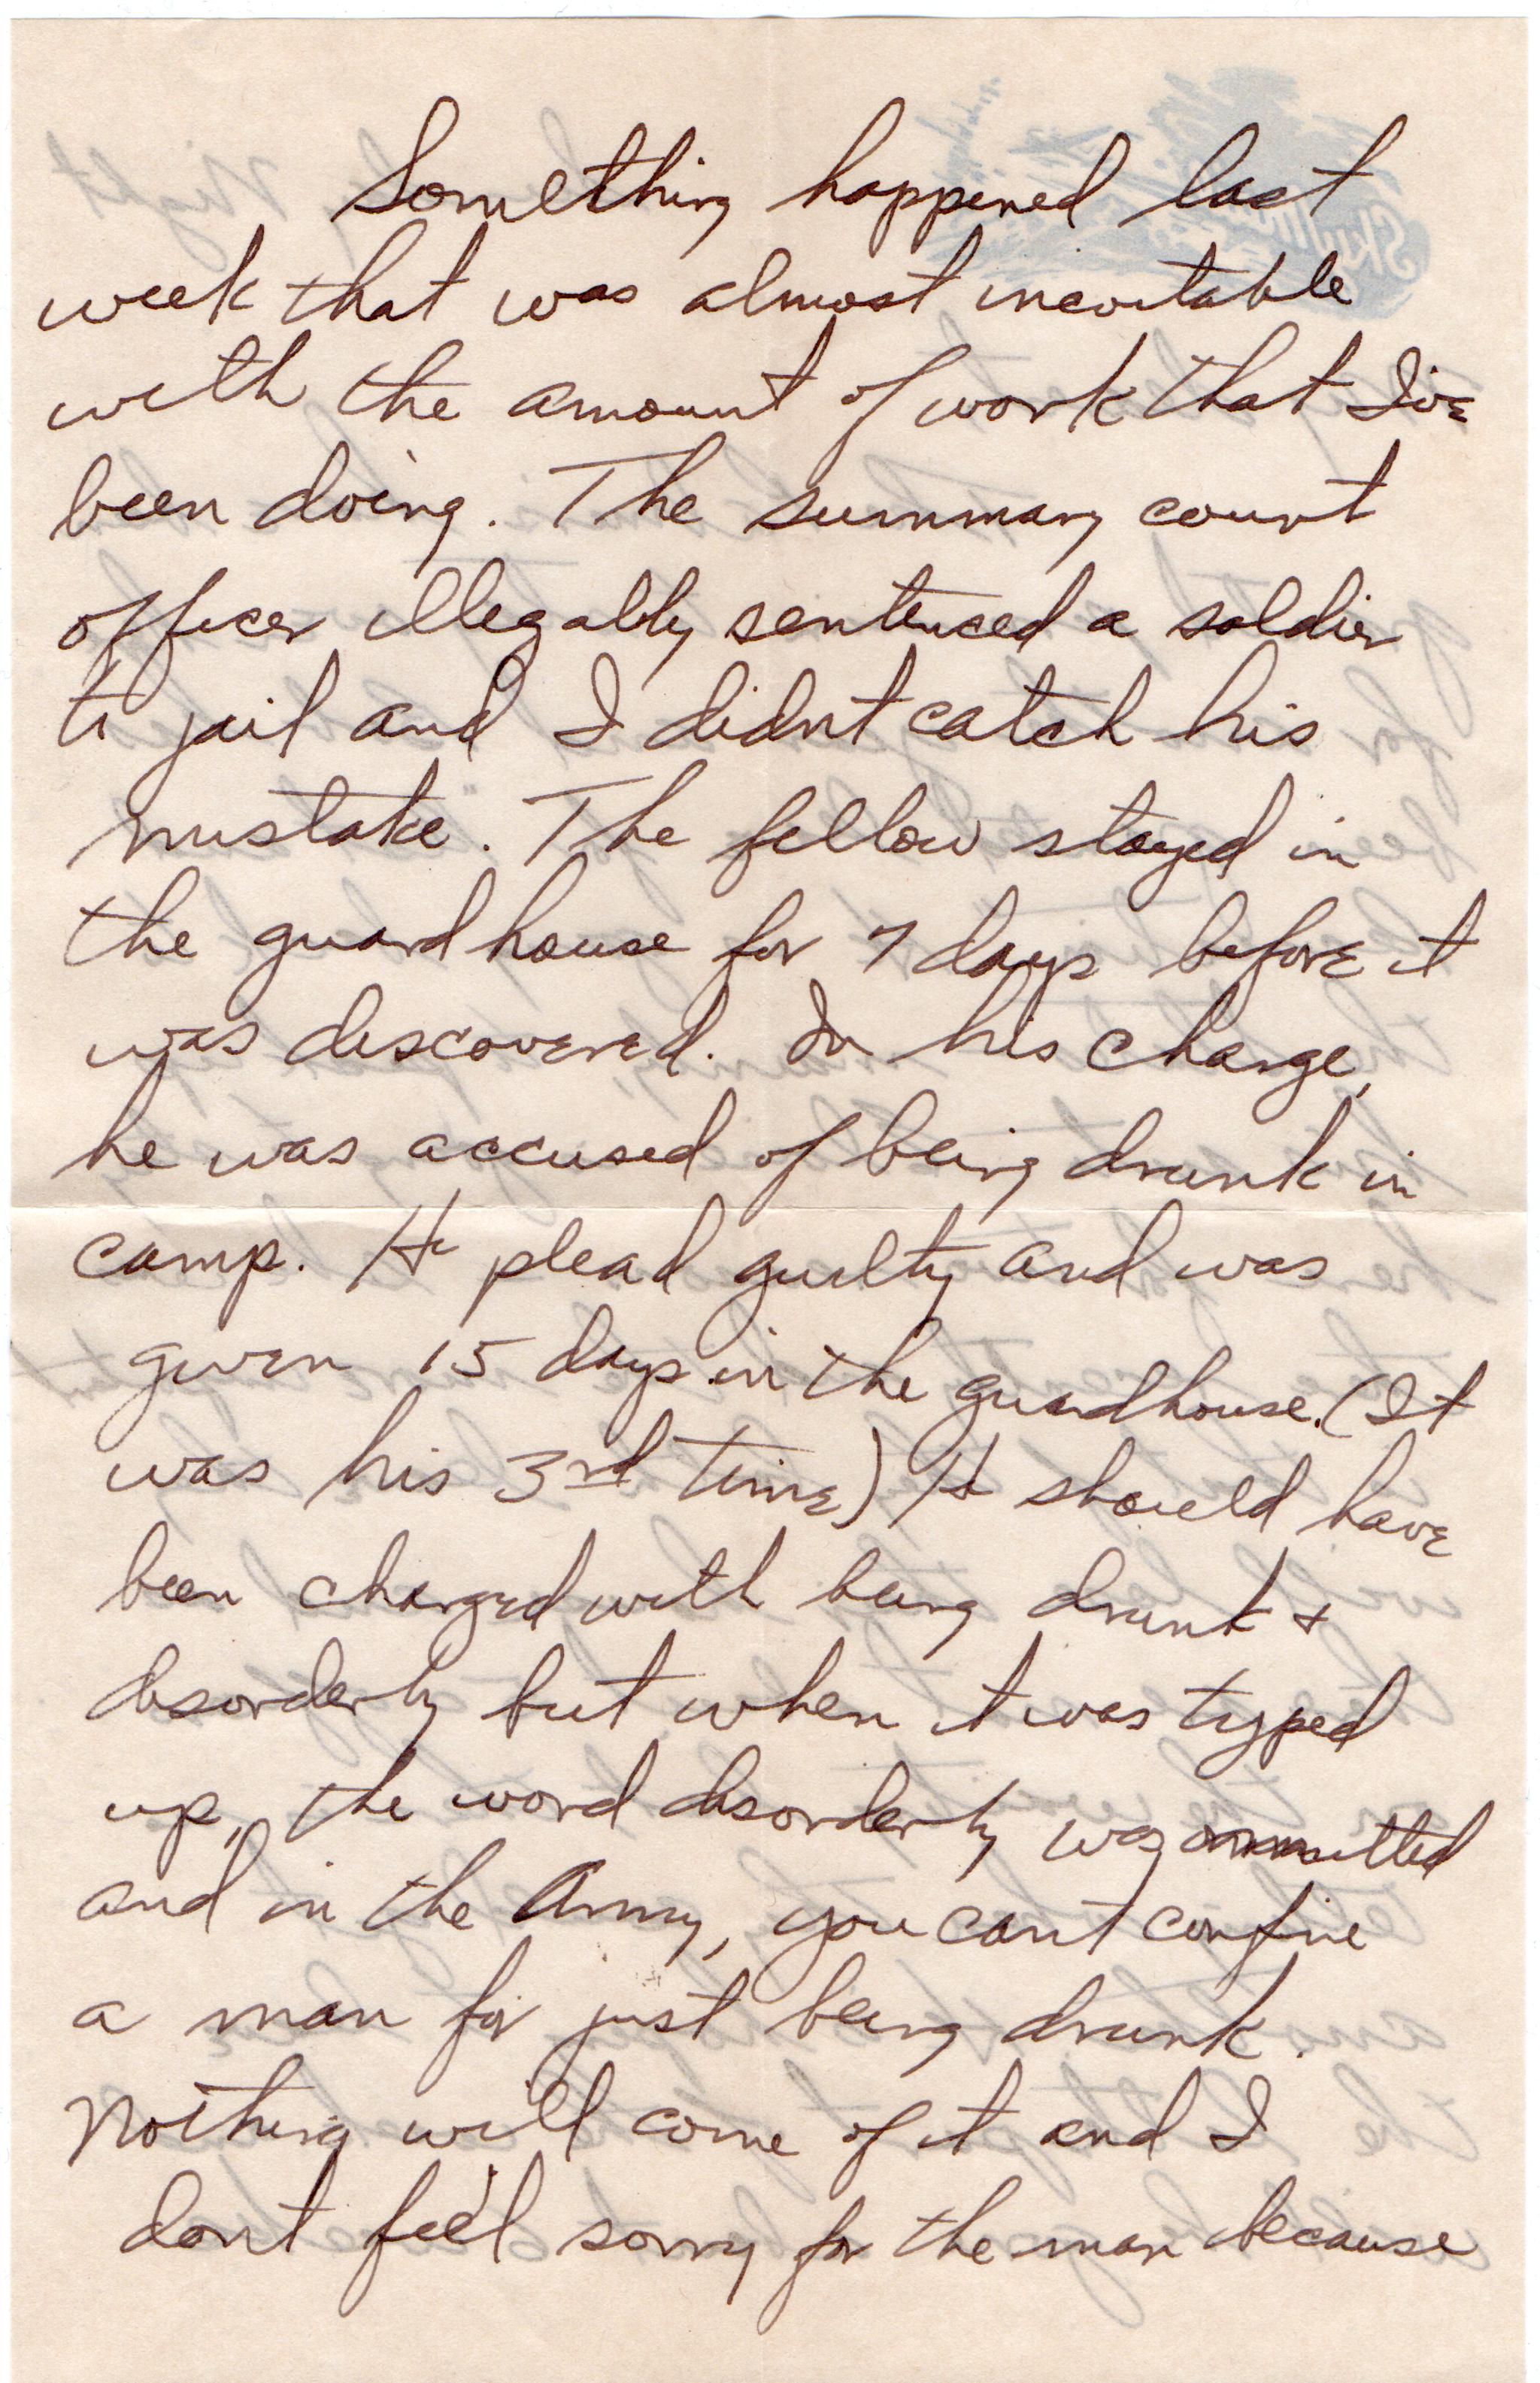 Something happened last
week that was almost inevitable
with the amount of work that I've
been doing. The summary court
officer illegally sentenced a soldier
to jail and I didnt catch his
mistake. The fellow stayed in
the guardhouse for 7 days before it
was discovered. In his charge,
he was accused of being drunk in
camp. He plead guilty and was
given 15 days in the guardhouse. (It
was his 3rd time) He should have
been charged with being drunk +
disorderly but when it was typed
up, the word disorderly was ommitted
and in the Army, you cant confine
a man for just being drunk.
Nothing will come of it and I
dont feel sorry for the man because